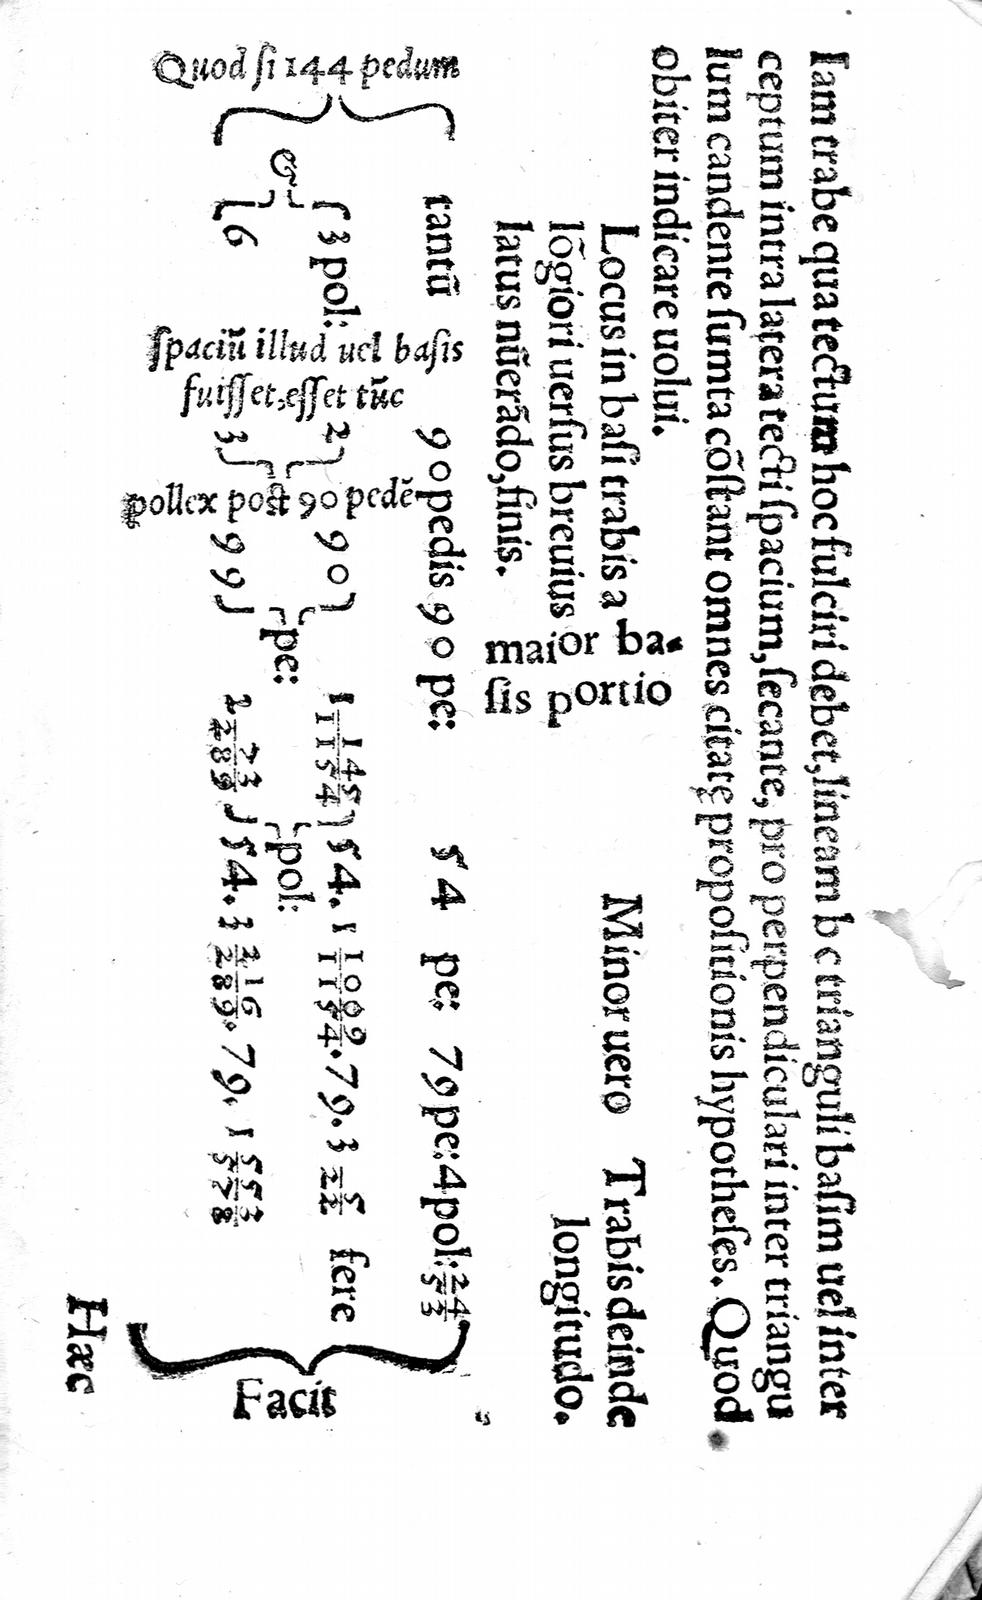 Iam trabe qua tectum hoc fulciri debet, lineam b c trianguli baſim uel inter
ceptum intra latera tecti ſpacium, ſecante, pro perpendiculari inter triangu
lum candente ſumta cõſtant omnes citatę propoſitionis hypotheſes. Quod
obiter indicare uolui.
Locus in baſi trabis a
lõgiori uerſus breuius
latus nũerãdo, finis.
maior ba-
ſis portio
Minor uero
Trabis deinde
longitudo.
Quod ſi 144 pedum
&
ſpaciũ illud uel baſis
fuiſſet, eſſet tũc
pollex poſt 90 pedẽ
tantũ 90 pedis 90 pe: 54 pe: 79 pe: 4 pol: 24/53
3 pol: 2 90 1 145/1154 54. 1 1009/1154. 79. 3 5/22 fere
pe: pol:
6 3 99 2 73/289 54. 3 216/289. 79. 1 553/578
Facit
Hæc